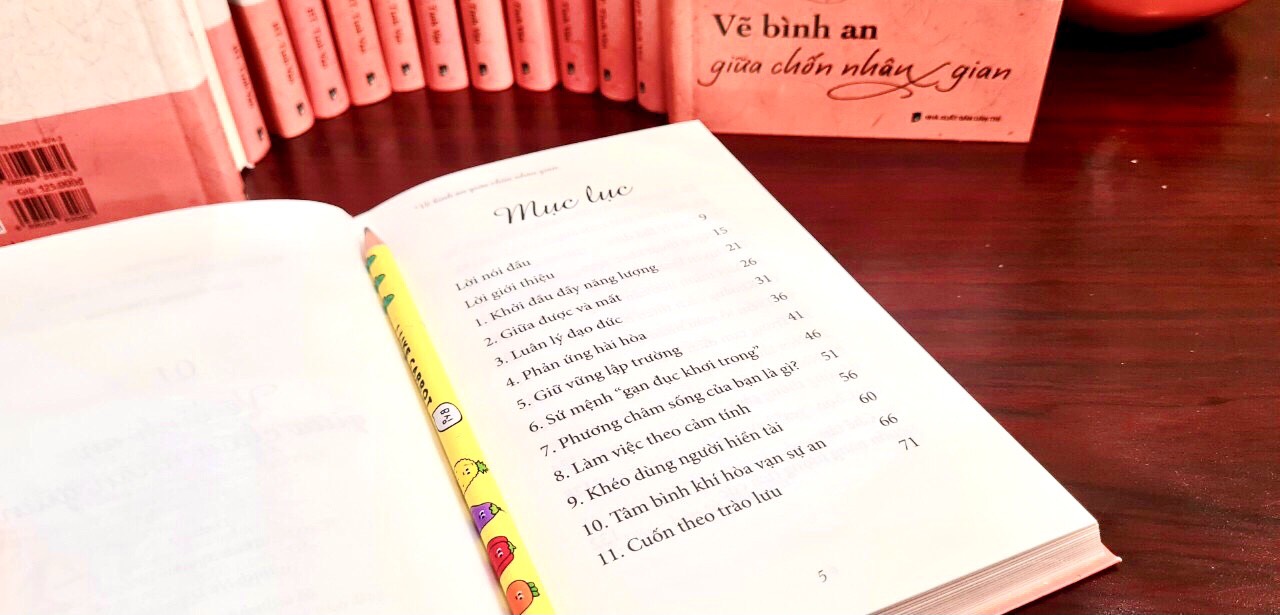 Vẽ bình an
giữa chốn nhân gian
NHÀ XUẤT BẢN DÂN TRÍ
Giá: 125.000đ
Vẽ bình an giữa chốn nhân gian
Mục lục
Lời nói đầu 9
Lời giới thiệu 15
1. Khởi đầu đầy năng lượng 21
2. Giữa được và mất 26
3. Luân lý đạo đức 31
4. Phản ứng hài hòa 36
5. Giữ vững lập trường 41
6. Sứ mệnh “gạn đục khơi trong” 46
7. Phương châm sống của bạn là gì? 51
8. Làm việc theo cảm tính 56
9. Khéo dùng người hiền tài 60
10. Tâm bình khí hòa vạn sự an 66
11. Cuốn theo trào lưu 71
5
I LIKE CARROT